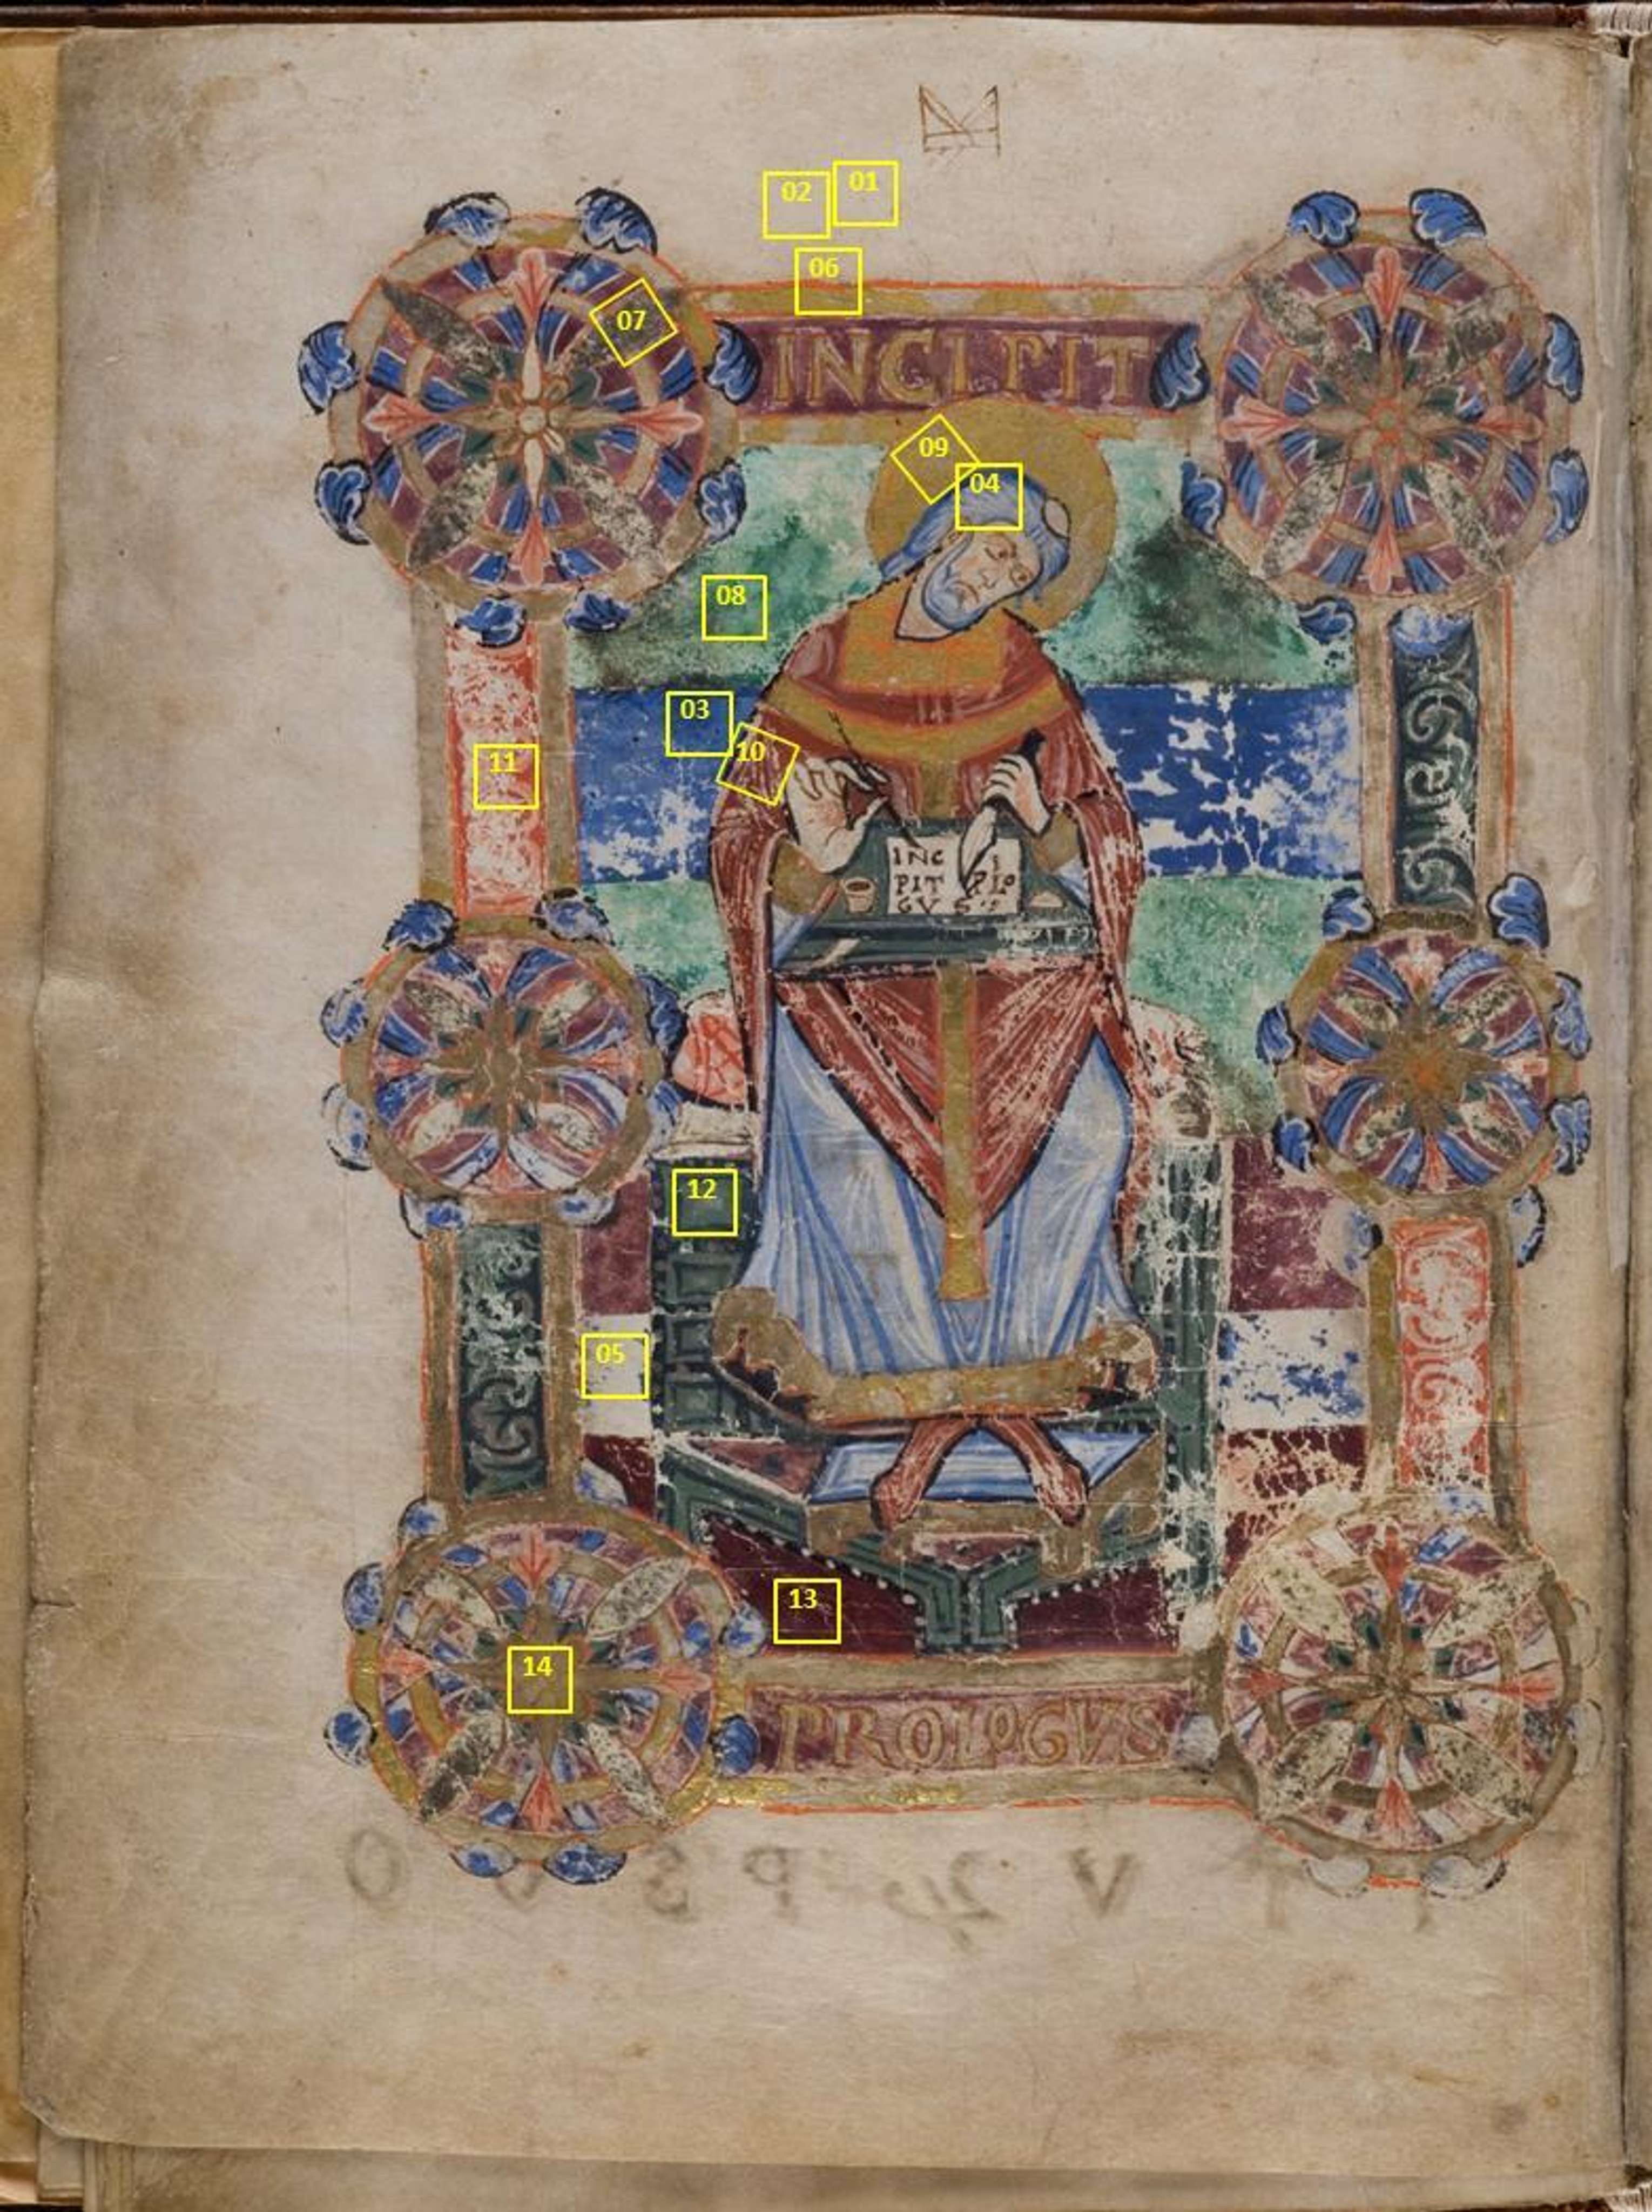 01
02
06
07
INCIPIT
09
04
08
03
10
11
INC
PIT PLo
GVS
12
05
13
14
PROLoGVS